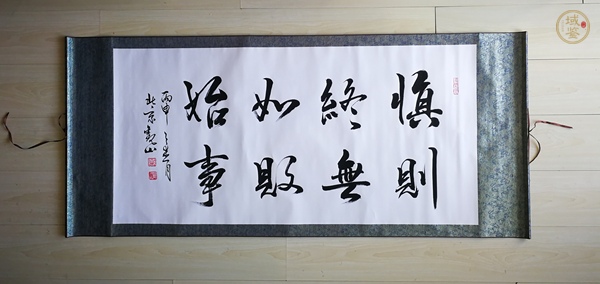 慎終如始
則無敗事
丙申
北京